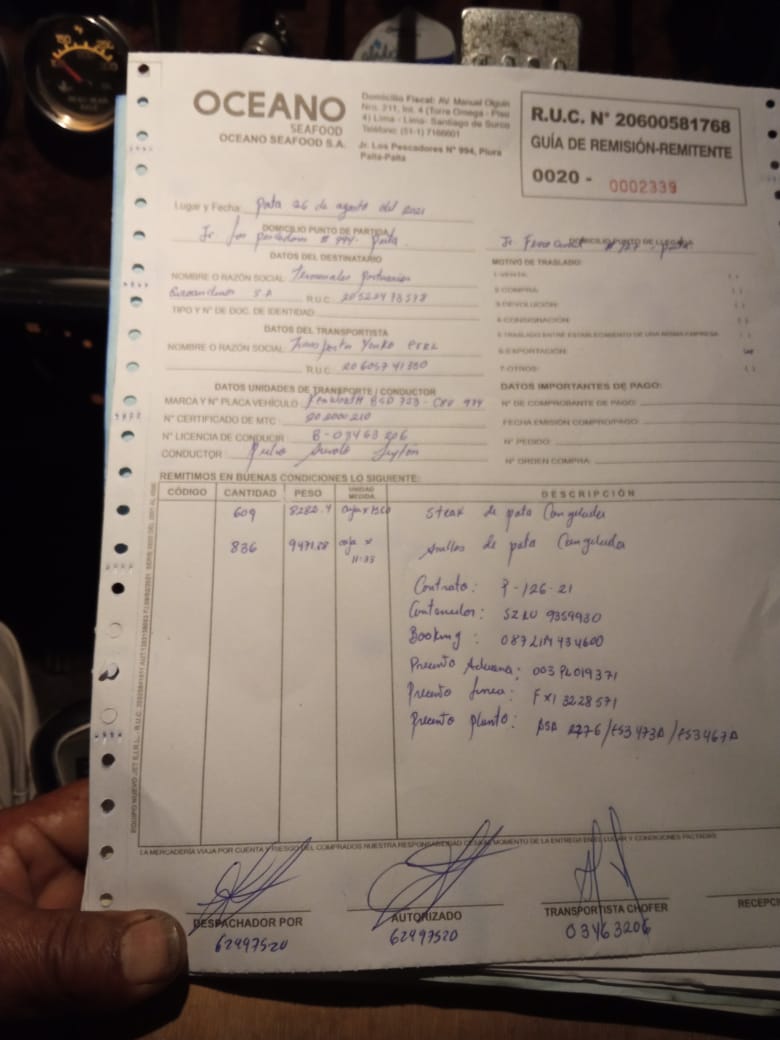 OCEANO
SEAFOOD
OCEANO SEAFOOD S.A.
Domicilio Fiscal: AV. Manuel Olguin
Nro. 211, Int. 4 (Torre Omega - Piso
4) Lima - Lima- Santiago de Surco
Teléfono: (51-1) 7166601
Jr. Los Pescadores N° 994, Piura
Paita-Paita
R.U.C. N° 20600581768
GUÍA DE REMISIÓN-REMITENTE
0020 - 0002339
Lugar y Fecha: paita 26 de agosto del 2021
DOMICILIO PUNTO DE PARTIDA
Jr los pescadores # 994- paita
DOMICILIO PUNTO DE LLEGADA
DATOS DEL DESTINATARIO
NOMBRE O RAZÓN SOCIAL: Terminales portuarios
Euroandinos S.A R.U.C.
TIPO Y N° DE DOC. DE IDENTIDAD:
DATOS DEL TRANSPORTISTA
NOMBRE O RAZÓN SOCIAL:
R.U.C. 20605741350
DATOS UNIDADES DE TRANSPORTE / CONDUCTOR
MARCA Y N° PLACA VEHÍCULO:
N° CERTIFICADO DE MTC:
N° LICENCIA DE CONDUCIR B-03463206
CONDUCTOR
MOTIVO DE TRASLADO:
1-VENTA:
2-COMPRA:
3-DEVOLUCIÓN:
4-CONSIGNACIÓN:
5-TRASLADO ENTRE ESTABLECIMIENTO DE UNA MISMA EMPRESA
6-EXPORTACIÓN:
7-OTROS:
DATOS IMPORTANTES DE PAGO:
N° DE COMPROBANTE DE PAGO:
FECHA EMISIÓN COMPRO/PAGO:
N° PEDIDO:
N° ORDEN COMPRA:
REMITIMOS EN BUENAS CONDICIONES LO SIGUIENTE:
CÓDIGO CANTIDAD PESO UNIDAD MEDIDA DESCRIPCIÓN
609 8282.4 caja x 13.60 Steak de pota Congelada
836 9471.88 caja x 11.33 Anillas de pota Congelada
Contrato: P-126-21
Contenedor: SZLU 9359930
Booking: 087LIM434600
Precinto Aduana: 003PL019371
Precinto linea: FX13228571
Precinto planta:
LA MERCADERÍA VIAJA POR CUENTA Y RIESGO DEL COMPRADOS NUESTRA RESPONSABILIDAD CESA AL MOMENTO DE LA ENTREGA EN EL LUGAR Y CONDICIONES PACTADAS
DESPACHADOR POR
62497520
AUTORIZADO
62497520
TRANSPORTISTA CHOFER
03463206